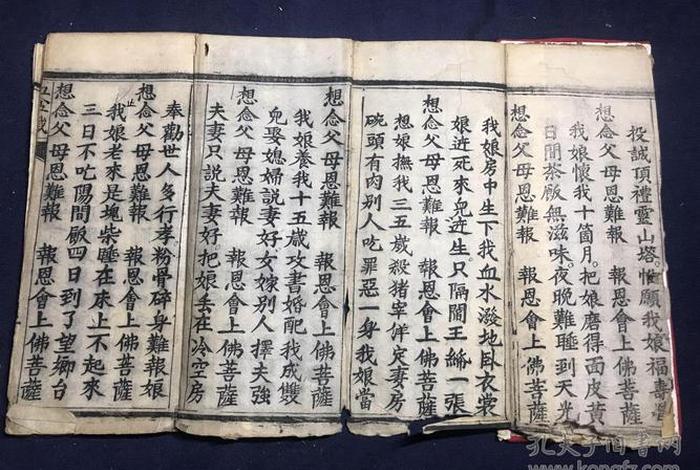 投誠頂禮靈山塔惟願我娘福壽
想念父母恩難報　報恩會上佛菩薩
我娘懷我十箇月把娘磨得面皮黃
日間茶飯無滋味夜晚難睡到天光
想念父母恩難報　報恩會上佛菩薩
我娘房中生下我血水潑地臥衣裳
娘近死來兒近生只隔閻王紙一張
想念父母恩難報　報恩會上佛菩薩
想娘撫我三五歲殺猪宰牂定妻房
碗頭有肉別人吃罪惡一身我娘當
想念父母恩難報　報恩會上佛菩薩
我娘養我十五歲攻書婚配我成雙
兒娶媳婦說妻好女嫁別人擇夫強
想念父母恩難報　報恩會上佛菩薩
夫妻只說夫妻好把娘丢在冷空房
奉勸世人多行孝粉骨碎身難報娘
想念父母恩難報　報恩會上佛菩薩
我娘老來是塊柴睡在床上不起來
三日不吃陽間飯四日到了望鄉台
想念父母恩難報　報恩會上佛菩薩
孔夫子旧书网